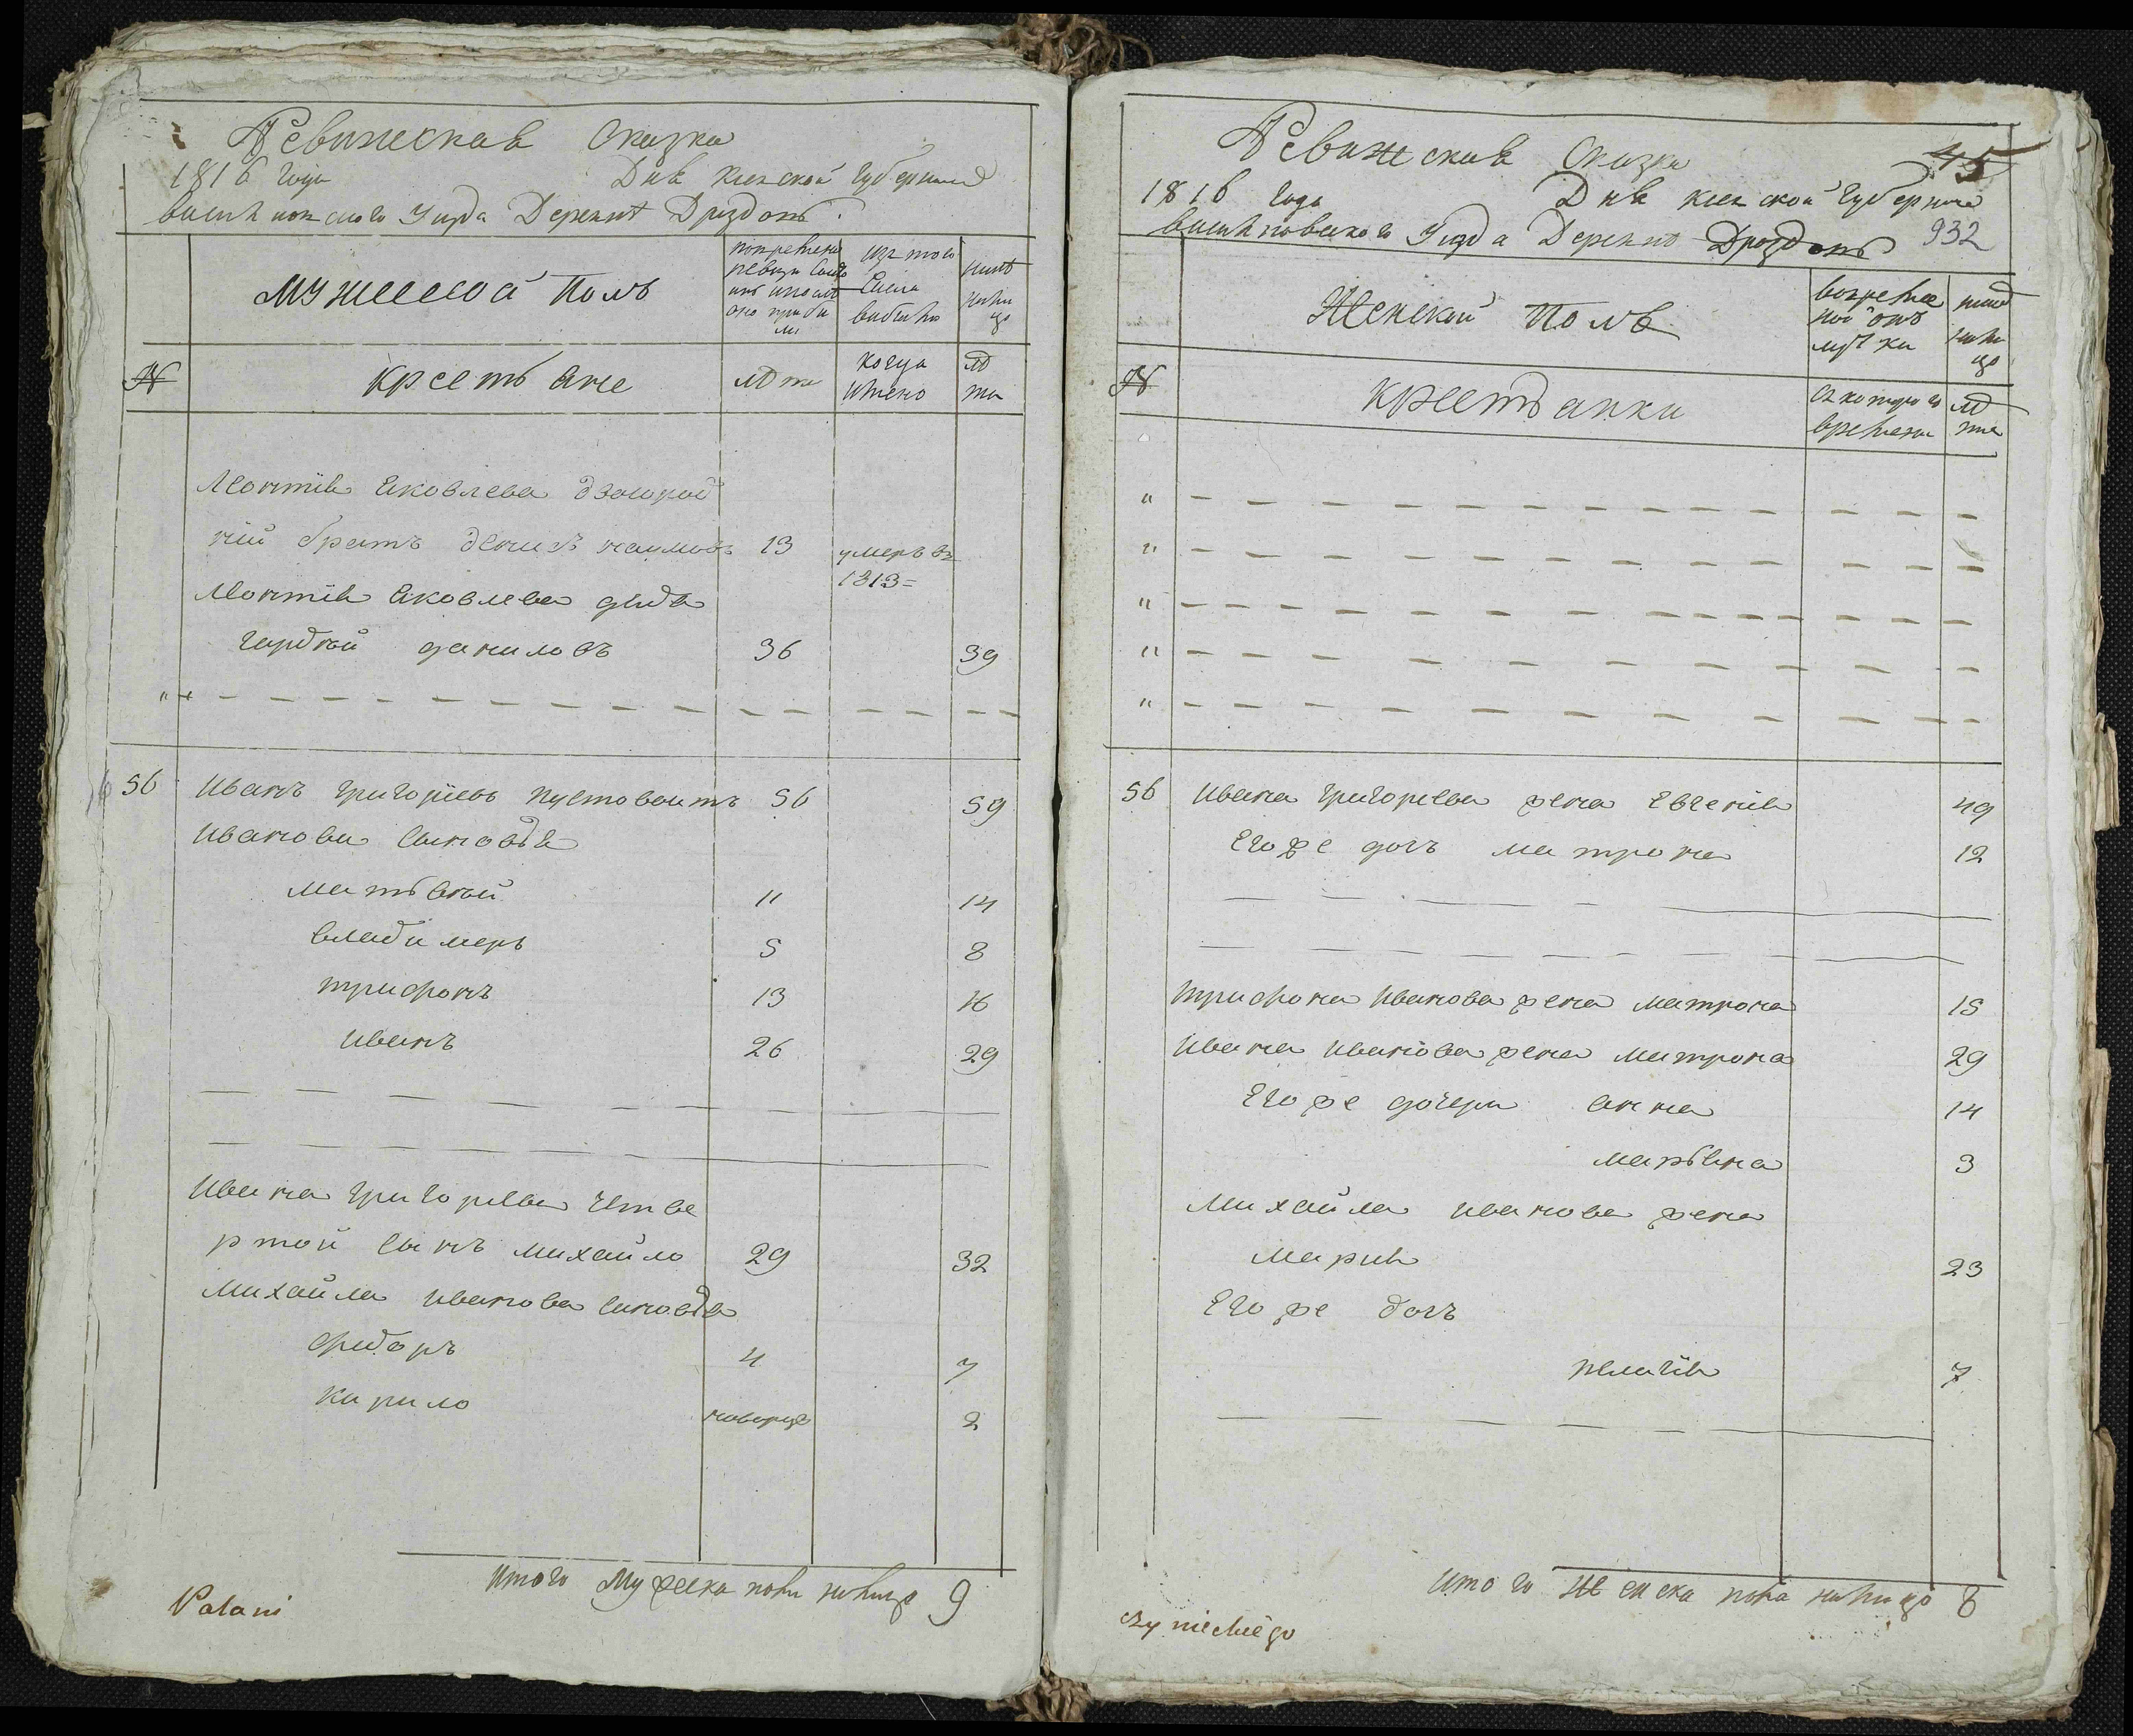 Ревижская Сказка
1816 года Дня Минской Губернии
Уезда Деревни Дроздовъ
мужеской Полъ
изъ того числа выбыло
ныне налицо
№
Крестьяне
лета
когда имено
лета
Леонтия Яковлева двоюрод
ний братъ денисъ наумовъ 13 умеръ въ
1813=
Леонтия Яковлева дядя
Гордѣй даниловъ 36 39
" — — — — — — — — — — — — — —
56 Иванъ Григорiевъ пустовоитъ 56 59
Иванова Сыновья
матвѣй 11 14
владимеръ 5 8
трифонъ 13 16
иванъ 26 29
— — — — — — — —
— — — — — — —
Ивана Григориева четве
ртой Сынъ михайло 29 32
михайла иванова Сыновья
федоръ 4 7
кирило 2
Итого Мужеска пола налицо 9
Palani
Ревижская Сказка 45
1816 Года Дня Минской Губернии
Уезда Деревни Дроздовъ 932
Женской Полъ
ныне налицо
№
Крестьянки
съ которого времени
лета
" — — — — — — — — — — — —
" — — — — — — — — — — — —
" — — — — — — — — — — — —
" — — — — — — — — — — — —
" — — — — — — — — — — — —
56 Ивана Григориева жена Евгения 49
Его же дочь матрона 12
— — — — —
— — — — — — — —
трифона Иванова жена матрона 15
Ивана Иванова жена матрона 29
Его же дочери анна 14
марьяна 3
михайла иванова жена
мария 23
Его же дочь
7
— — — — — — —
Итого Женска пола налицо 8